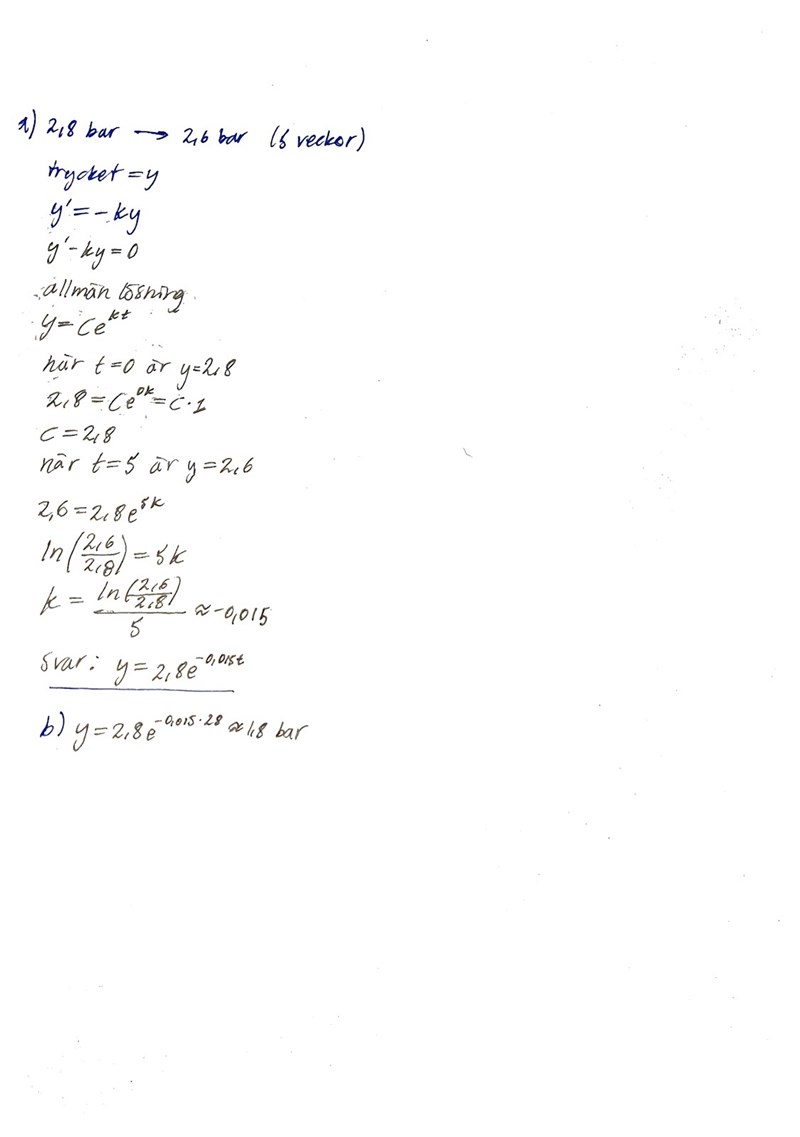 a) 2,8 bar → 2,6 bar (5 veckor)
trycket = y
y' = -ky
y' - ky = 0
allmän lösning
y = Ce^{kt}
när t=0 är y=2,8
2,8 = Ce^{0k} = C·1
C = 2,8
när t=5 är y=2,6
2,6 = 2,8e^{5k}
ln(2,6/2,8) = 5k
k = ln(2,6/2,8)/5 ≈ -0,015
Svar: y = 2,8e^{-0,015t}
b) y = 2,8e^{-0,015·28} ≈ 1,8 bar